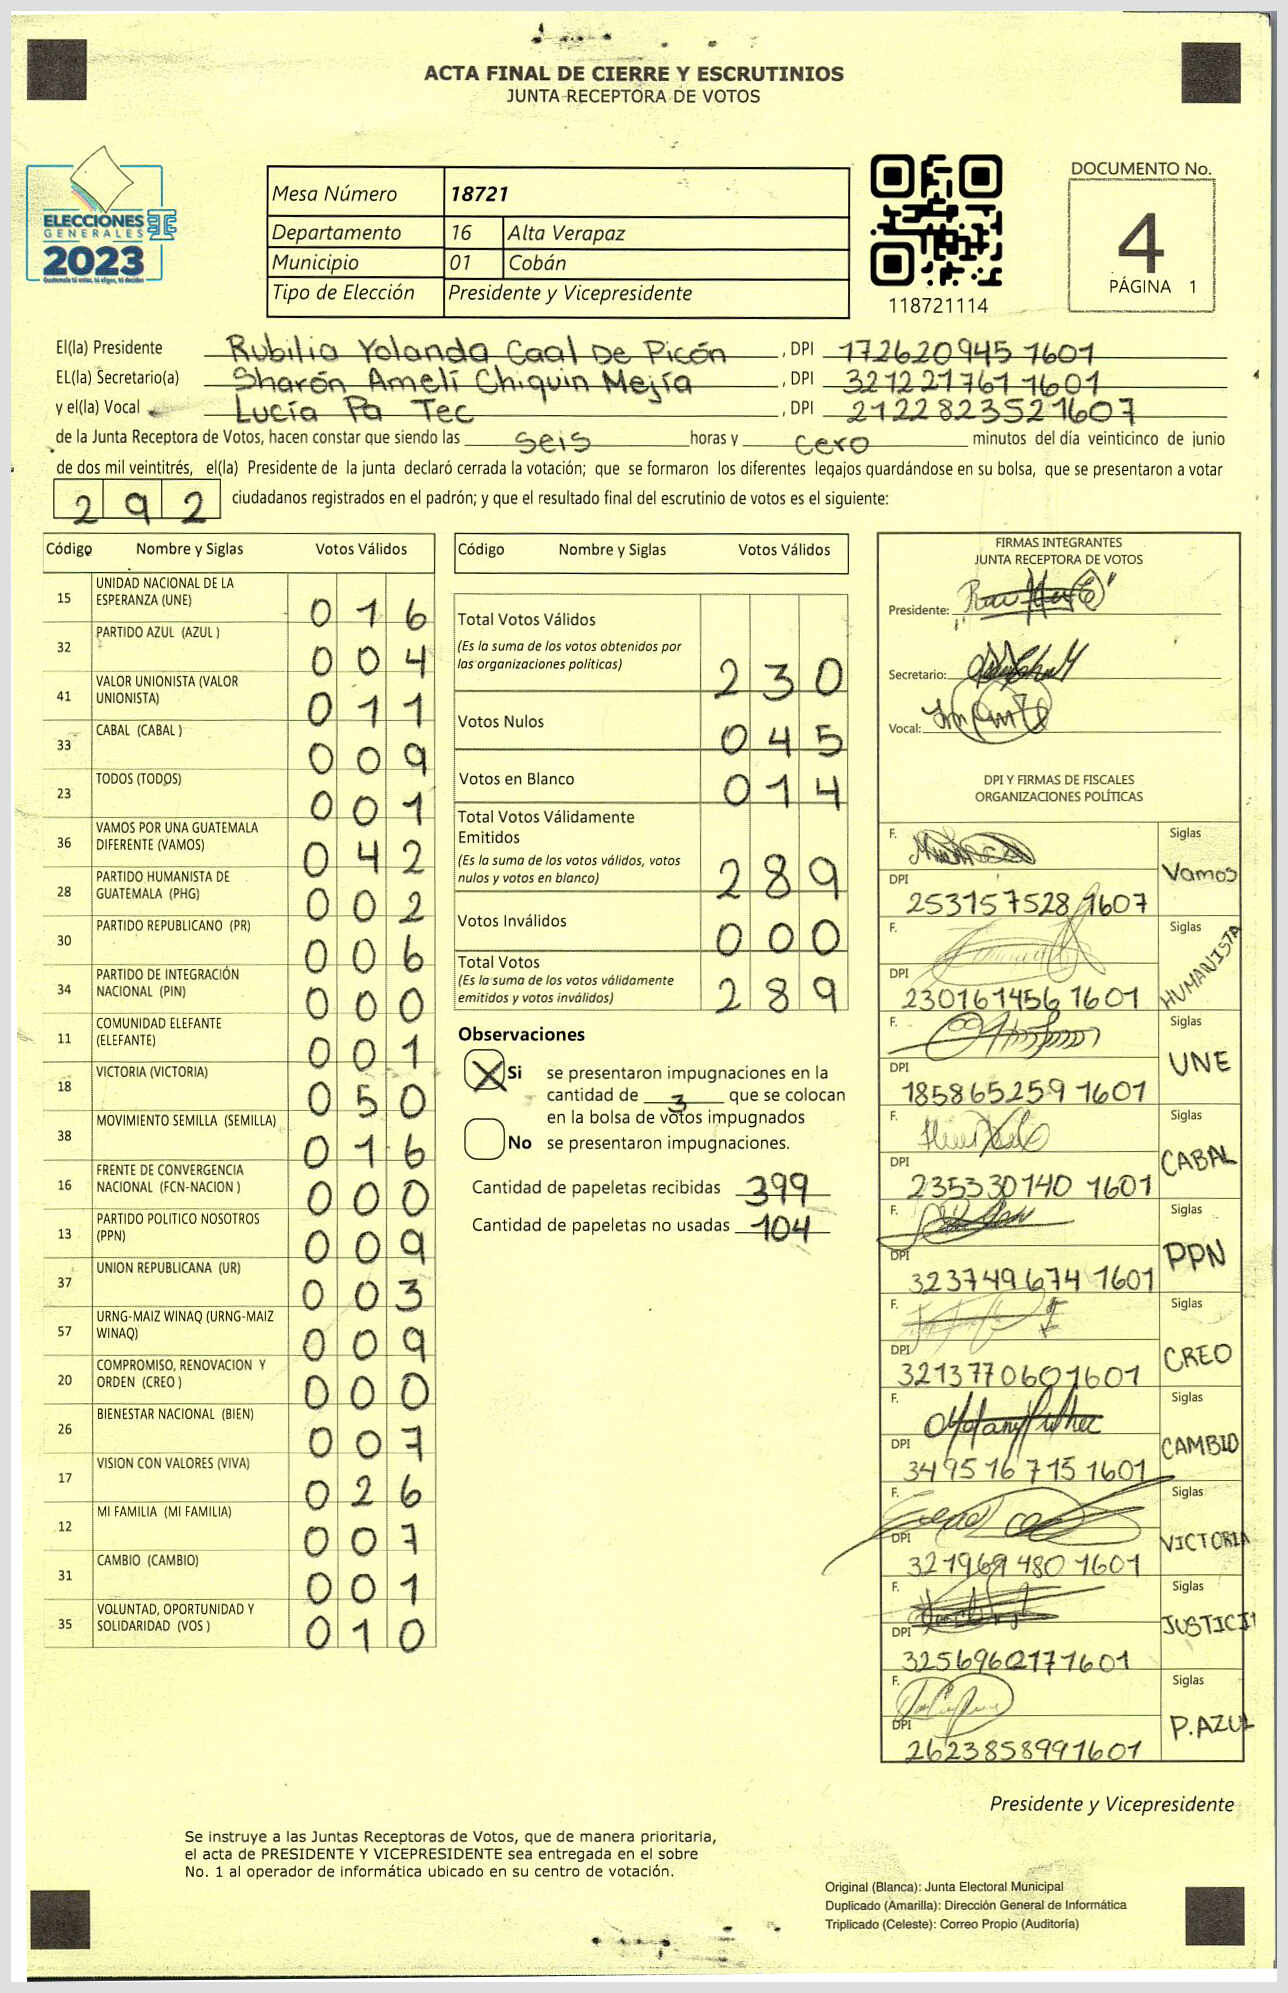 ACTA FINAL DE CIERRE Y ESCRUTINIOS
JUNTA RECEPTORA DE VOTOS
ELECCIONES
GENERALES
2023
Guatemala tú votas, tú eliges, tú decides
Mesa Número 18721
Departamento 16 Alta Verapaz
Municipio 01 Cobán
Tipo de Elección Presidente y Vicepresidente
118721114
DOCUMENTO No.
4
PÁGINA 1
El(la) Presidente Rubilia Yolanda Caal De Picón , DPI 172620945 1601
EL(la) Secretario(a) Sharón Amelí Chiquin Mejía , DPI 321221761 1601
y el(la) Vocal Lucía Pa Tec , DPI 212282352 1607
de la Junta Receptora de Votos, hacen constar que siendo las seis horas y cero minutos del día veinticinco de junio
de dos mil veintitrés, el(la) Presidente de la junta declaró cerrada la votación; que se formaron los diferentes legajos guardándose en su bolsa, que se presentaron a votar
292 ciudadanos registrados en el padrón; y que el resultado final del escrutinio de votos es el siguiente:
Código Nombre y Siglas Votos Válidos
15 UNIDAD NACIONAL DE LA
ESPERANZA (UNE) 016
32 PARTIDO AZUL (AZUL ) 004
41 VALOR UNIONISTA (VALOR
UNIONISTA) 011
33 CABAL (CABAL ) 009
23 TODOS (TODOS) 001
36 VAMOS POR UNA GUATEMALA
DIFERENTE (VAMOS) 042
28 PARTIDO HUMANISTA DE
GUATEMALA (PHG) 002
30 PARTIDO REPUBLICANO (PR) 006
34 PARTIDO DE INTEGRACIÓN
NACIONAL (PIN) 000
11 COMUNIDAD ELEFANTE
(ELEFANTE) 001
18 VICTORIA (VICTORIA) 050
38 MOVIMIENTO SEMILLA (SEMILLA) 016
16 FRENTE DE CONVERGENCIA
NACIONAL (FCN-NACION ) 000
13 PARTIDO POLITICO NOSOTROS
(PPN) 009
37 UNION REPUBLICANA (UR) 003
57 URNG-MAIZ WINAQ (URNG-MAIZ
WINAQ) 009
20 COMPROMISO, RENOVACION Y
ORDEN (CREO ) 000
26 BIENESTAR NACIONAL (BIEN) 007
17 VISION CON VALORES (VIVA) 026
12 MI FAMILIA (MI FAMILIA) 007
31 CAMBIO (CAMBIO) 001
35 VOLUNTAD, OPORTUNIDAD Y
SOLIDARIDAD (VOS ) 010
Código Nombre y Siglas Votos Válidos
Total Votos Válidos
(Es la suma de los votos obtenidos por
las organizaciones políticas) 230
Votos Nulos 045
Votos en Blanco 014
Total Votos Válidamente
Emitidos
(Es la suma de los votos válidos, votos
nulos y votos en blanco) 289
Votos Inválidos 000
Total Votos
(Es la suma de los votos válidamente
emitidos y votos inválidos) 289
Observaciones
X Si se presentaron impugnaciones en la
cantidad de 3 que se colocan
en la bolsa de votos impugnados
No se presentaron impugnaciones.
Cantidad de papeletas recibidas 399
Cantidad de papeletas no usadas 104
FIRMAS INTEGRANTES
JUNTA RECEPTORA DE VOTOS
Presidente:
Secretario:
Vocal:
DPI Y FIRMAS DE FISCALES
ORGANIZACIONES POLÍTICAS
F. Siglas
Vamos
DPI
253157528 1607
F. Siglas
HUMANISTA
DPI
230161456 1601
F. Siglas
UNE
DPI
185865259 1601
F. Siglas
CABAL
DPI
235330140 1601
F. Siglas
PPN
DPI
323749674 1601
F. Siglas
CREO
DPI
321377060 1601
F. Siglas
CAMBIO
DPI
349516715 1601
F. Siglas
VICTORIA
DPI
321969480 1601
F. Siglas
DPI
325696217 1601
F. Siglas
P.AZUL
DPI
262385899 1601
Presidente y Vicepresidente
Se instruye a las Juntas Receptoras de Votos, que de manera prioritaria,
el acta de PRESIDENTE Y VICEPRESIDENTE sea entregada en el sobre
No. 1 al operador de informática ubicado en su centro de votación.
Original (Blanca): Junta Electoral Municipal
Duplicado (Amarilla): Dirección General de Informática
Triplicado (Celeste): Correo Propio (Auditoría)